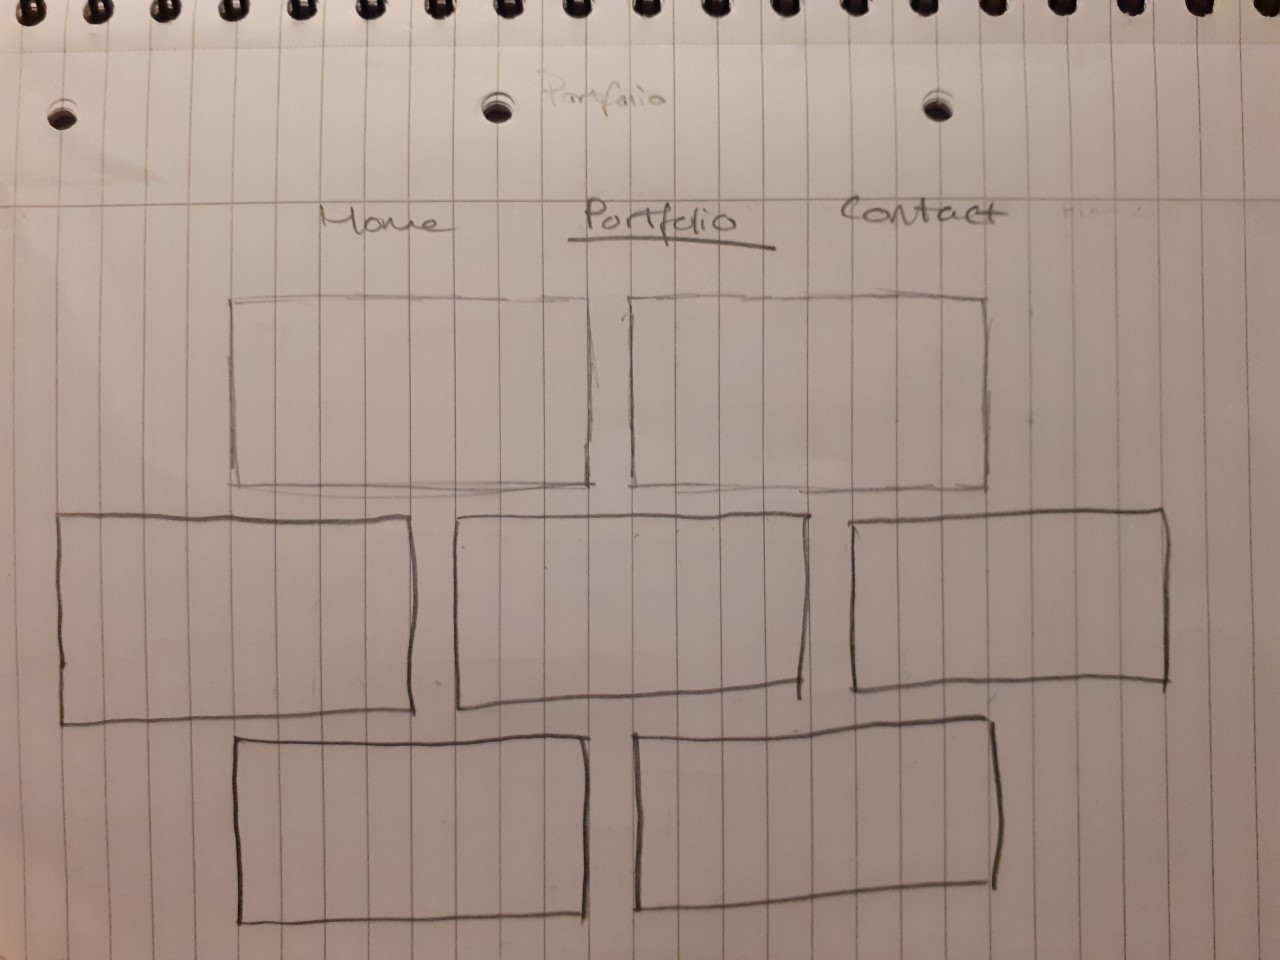 Portfolio
Home Portfolio Contact